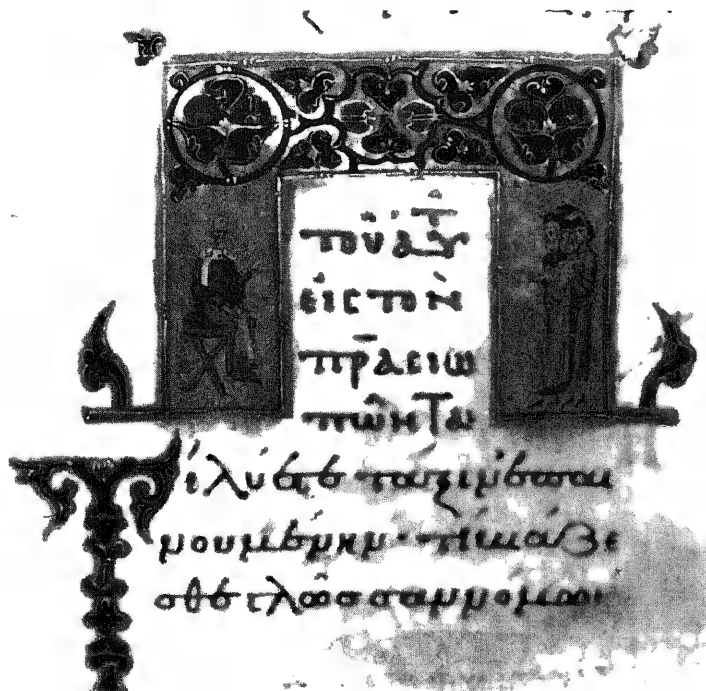 τοῦ ἀυτ
εἰς τὸν
πρ̅α σιω
πῶντα
Τί λύετε τάξιν ἐπαι
νουμένην· τί βιάζε
σθε γλῶσσαν νόμω